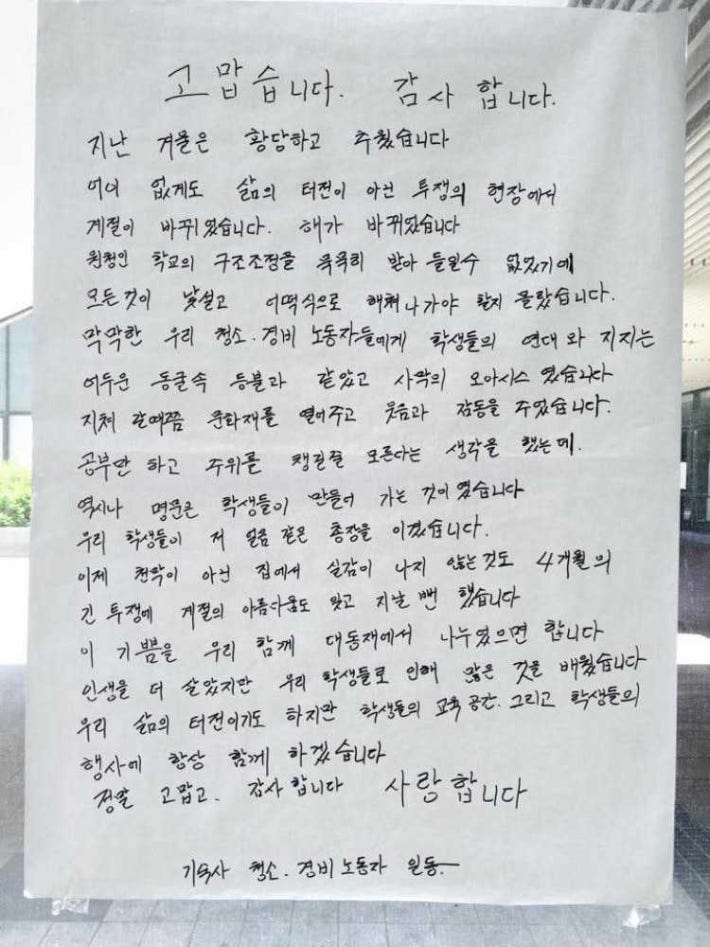 고맙습니다. 감사합니다.
지난 겨울은 황당하고 추웠습니다
어이 없게도 삶의 터전이 아닌 투쟁의 현장에서
계절이 바뀌었습니다. 해가 바뀌었습니다
원청인 학교의 구조조정을 묵묵히 받아 들일수 없었기에
모든것이 낯설고 어떡식으로 해쳐나가야 할지 몰랐습니다.
막막한 우리 청소·경비 노동자들에게 학생들의 연대와 지지는
어두운 동굴속 등불과 같았고 사막의 오아시스 였습니다
지쳐 갈때쯤 문화재를 열어주고 웃음과 감동을 주었습니다.
공부만 하고 주위를 챙길줄 모른다는 생각을 했는데.
역시나 명문은 학생들이 만들어 가는 것이였습니다
우리 학생들이 저 얼음 같은 총장을 이겼습니다.
이제 천막이 아닌 집에서 실감이 나지 않는것도 4개월의
긴 투쟁에 계절의 아름다움도 잊고 지날 뻔 했습니다
이 기쁨을 우리 함께 대동재에서 나누었으면 합니다
인생을 더 살았지만 우리 학생들로 인해 많은 것을 배웠습니다
우리 삶의 터전이기도 하지만 학생들의 교육 공간. 그리고 학생들의
행사에 항상 함께 하겠습니다
정말 고맙고. 감사합니다 사랑합니다
기숙사 청소·경비노동자 일동